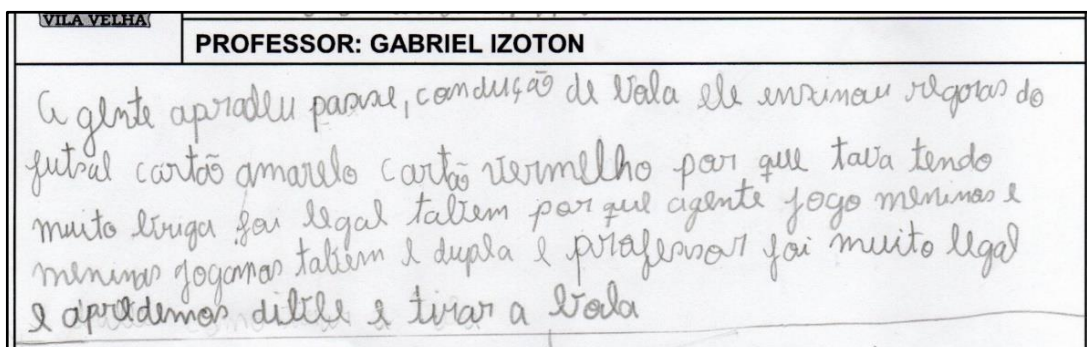 VILA VELHA
PROFESSOR: GABRIEL IZOTON
A gente apradeu passe, condução de bola ele ensinou regras do
futsal cartão amarelo cartão vermelho por que tava tendo
muito briga foi legal tabem por que agente jogo meninos e
meninas jogamos tabem e dupla e professor foi muito legal
e apredemos dible e tirar a bola